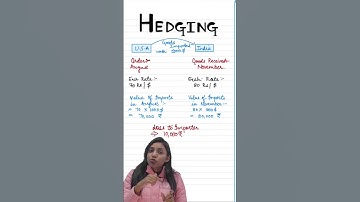 HEDGING
U.S.A
Goods
Imported
India
Order
August
Goods Received
November
Exch Rate :-
70 Rs / $
Exch Rate :-
80 Rs / $
Value of Imports
in August :-
= 70 × 1000 $
= 70,000 ₹
Value of Imports
in November :-
= 80 × 1000 $
= 80,000 ₹
Loss to Importer
⇒ 10,000 ₹